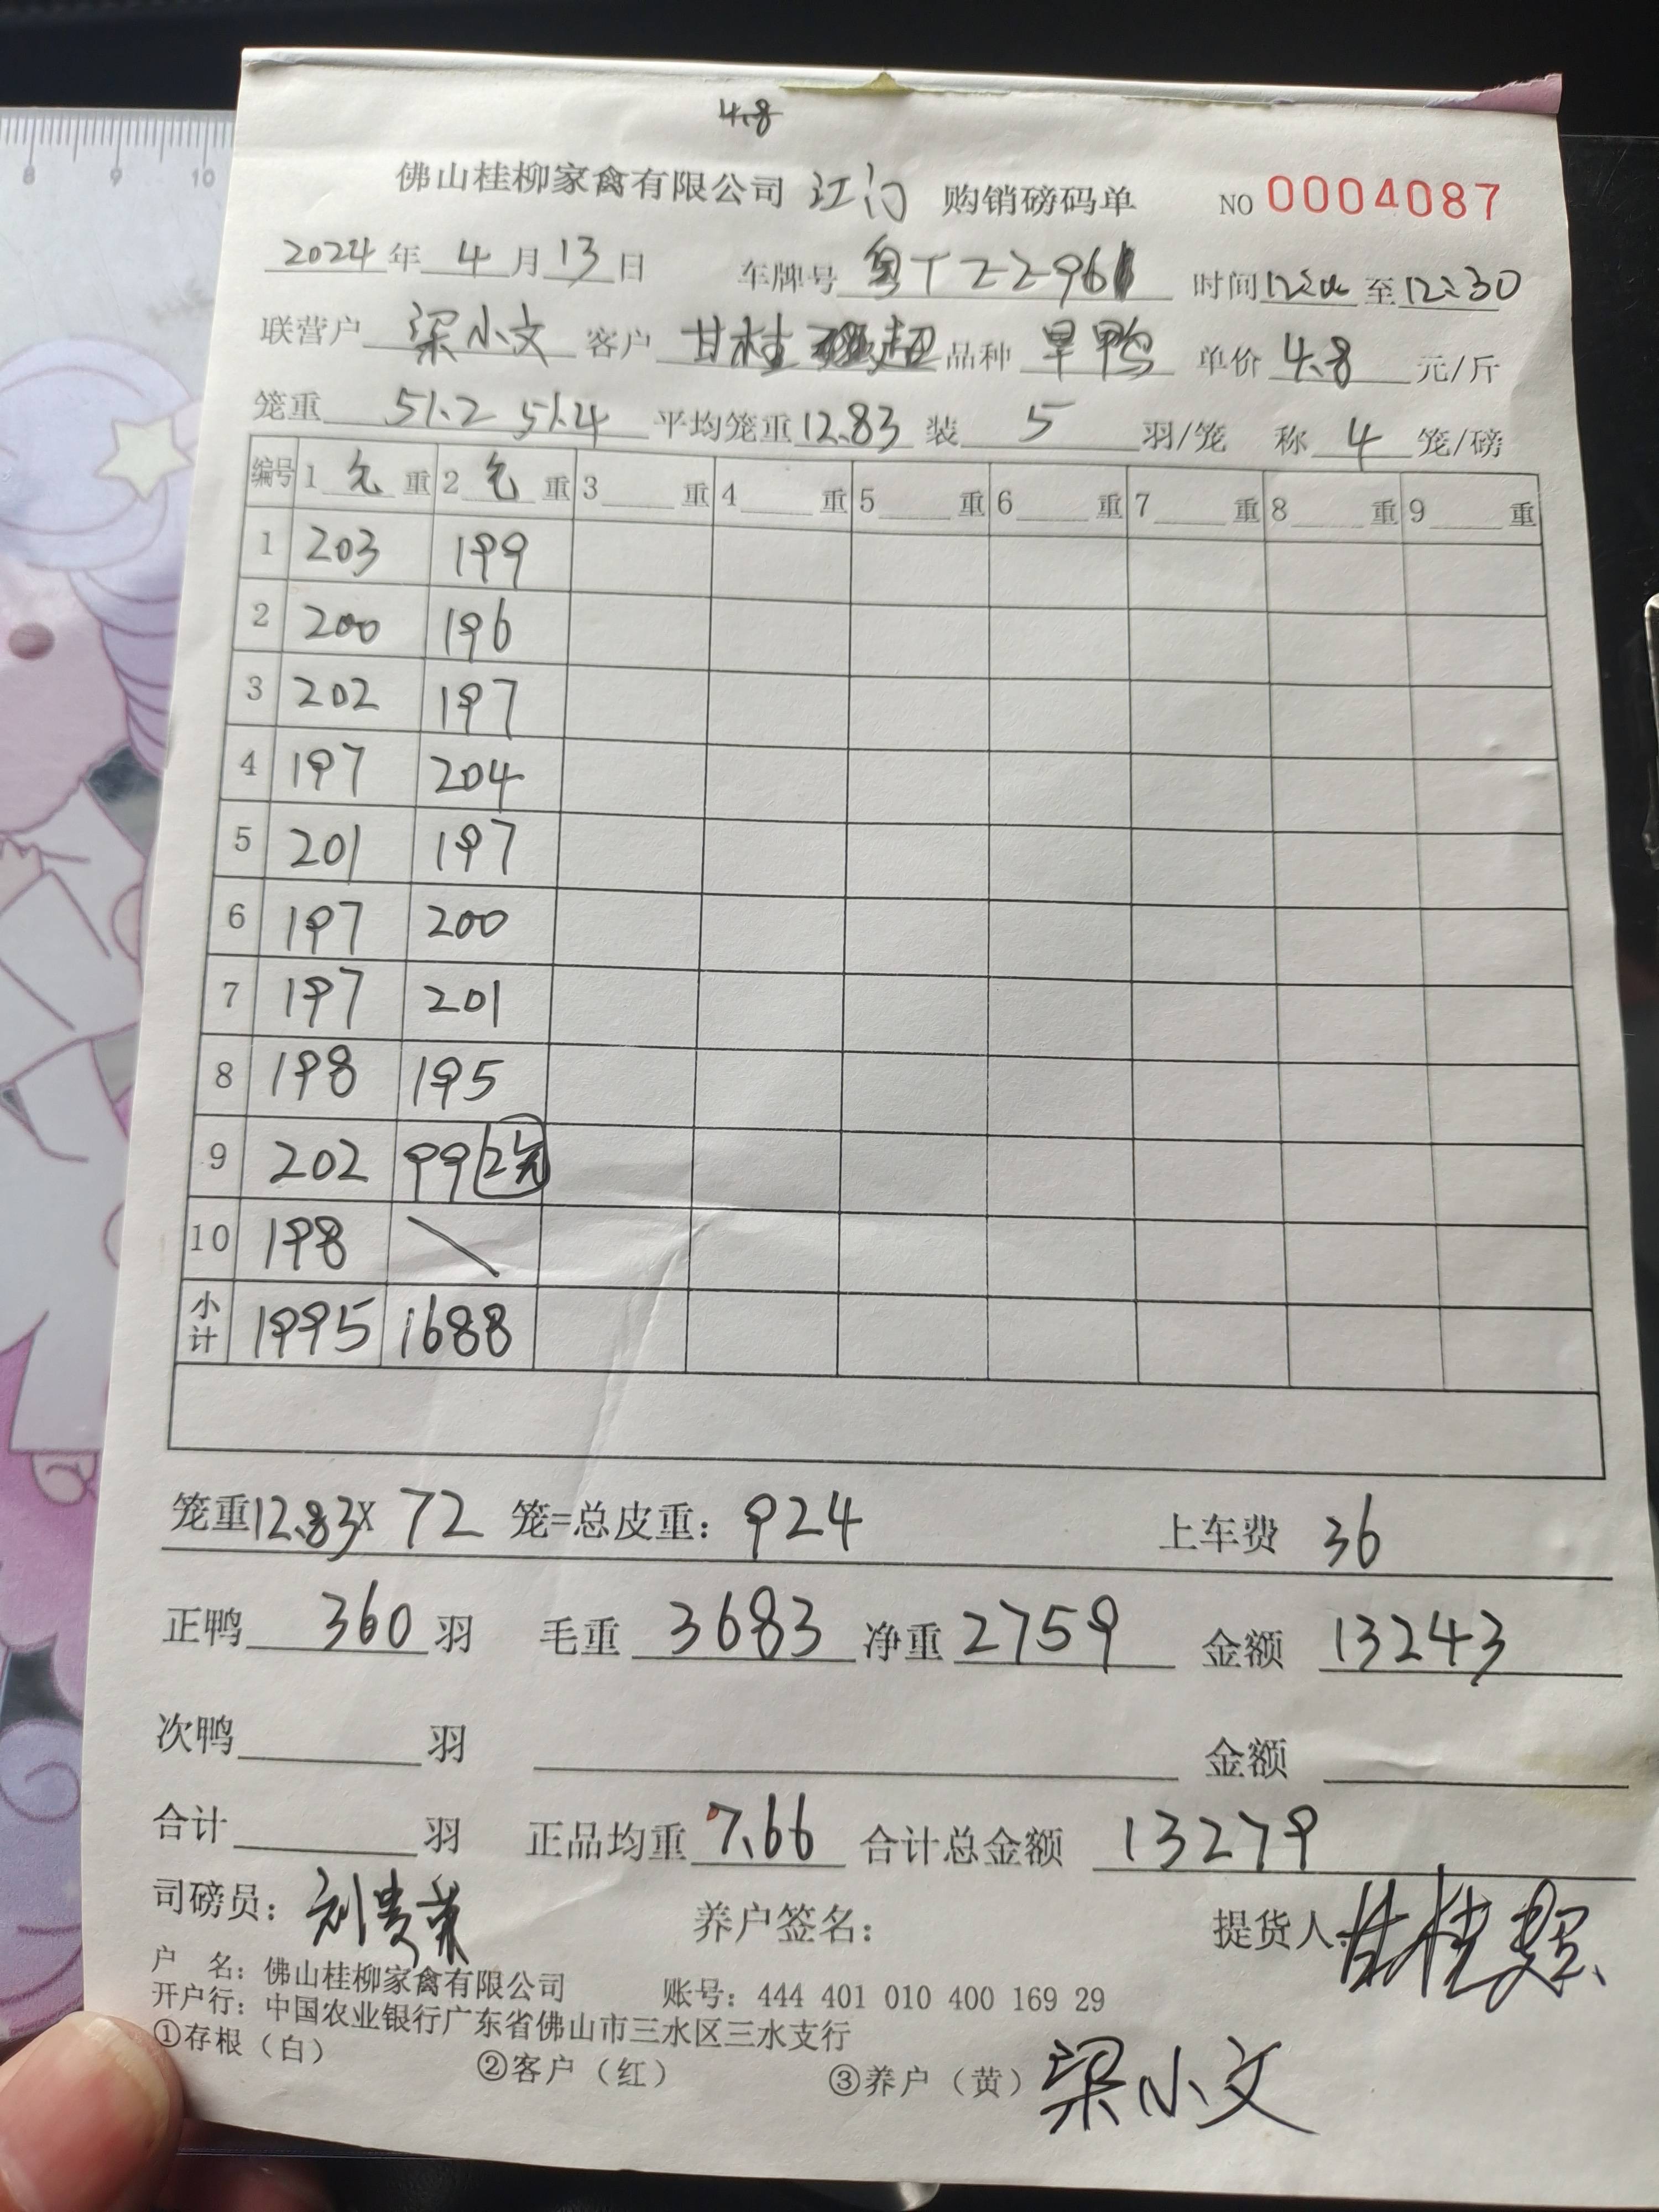 4.8
佛山桂柳家禽有限公司 江门 购销磅码单 NO 0004087
2024年4月13日 车牌号 粤T22961 时间 至12:30
联营户 梁小文 客户 甘桂 超 品种 旱鸭 单价 4.8 元/斤
笼重 51.2 51.4 平均笼重 12.83 装 5 羽/笼 称 4 笼/磅
编号 1 毛 重 2 毛 重 3 重 4 重 5 重 6 重 7 重 8 重 9 重
1 203 199
2 200 196
3 202 197
4 197 204
5 201 197
6 197 200
7 197 201
8 198 195
9 202 99 2笼
10 198 \
小计 1995 1688
笼重12.83X 72 笼=总皮重：924 上车费 36
正鸭 360 羽 毛重 3683 净重 2759 金额 13243
次鸭 羽 金额
合计 羽 正品均重 7.66 合计总金额 13279
司磅员：刘贵荣 养户签名： 提货人：甘桂
户 名：佛山桂柳家禽有限公司 账号：444 401 010 400 169 29
开户行：中国农业银行广东省佛山市三水区三水支行
①存根（白） ②客户（红） ③养户（黄） 梁小文